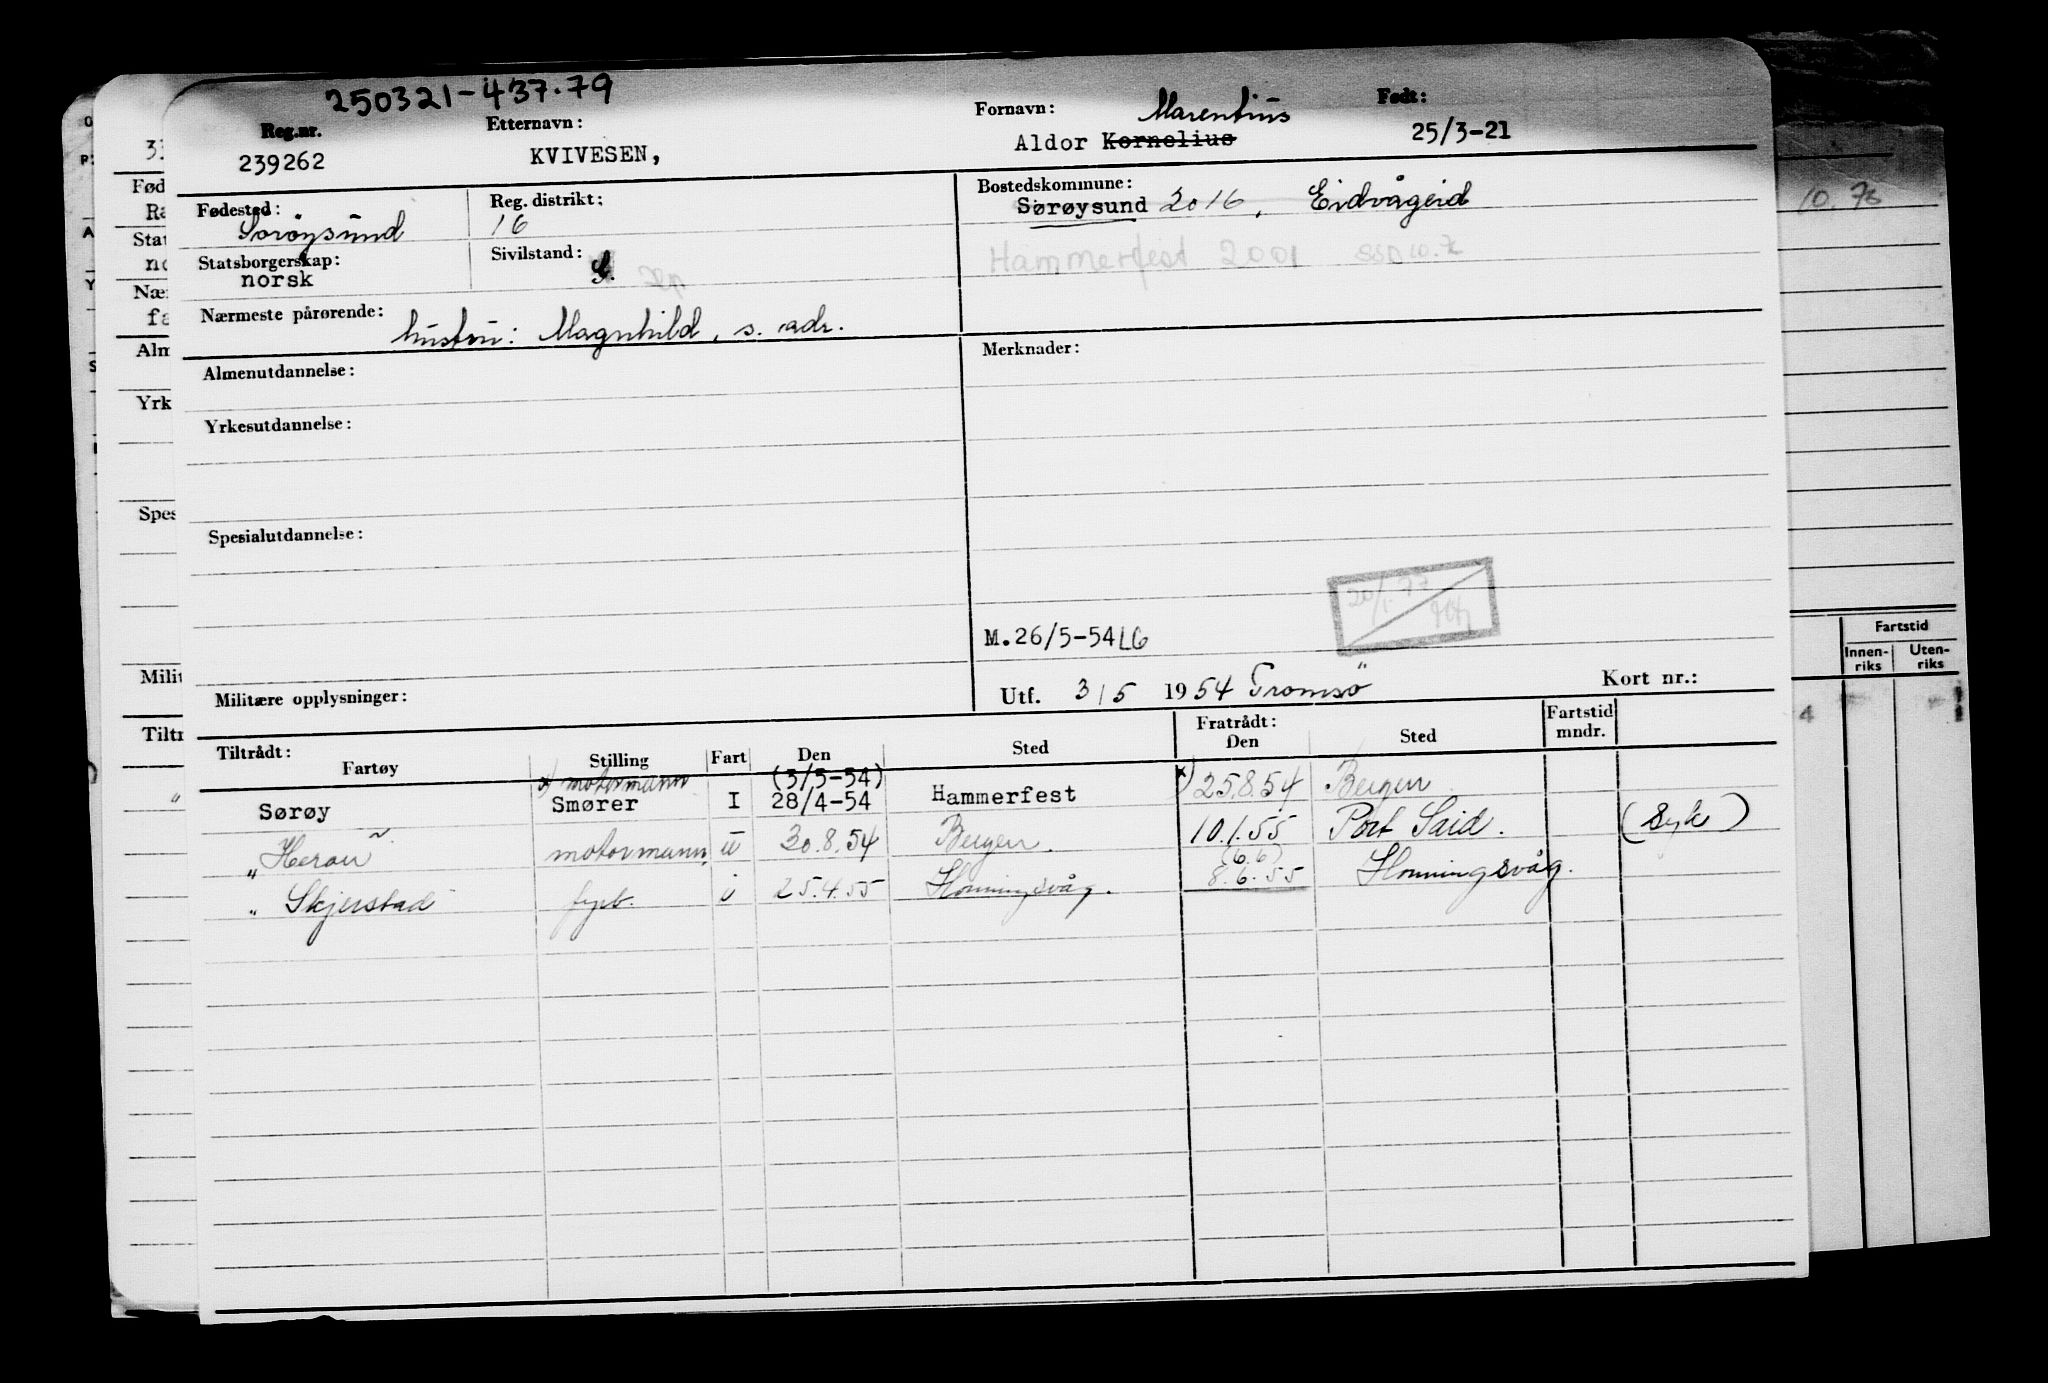 250321-437.79
Reg.nr. Etternavn: Fornavn: Marentius Født:
239262 KVIVESEN, Aldor Kornelius 25/3-21
Fødested: Reg. distrikt: Bostedskommune:
Sörøysund 16 Sørøysund 2016, Eidvågeid
Statsborgerskap: Sivilstand: Hammerfest 2001
norsk
Nærmeste pårørende:
hustru: Magnhild, s. adr.
Almenutdannelse: Merknader:
Yrkesutdannelse:
Spesialutdannelse:
20/1.77
M.26/5-54 LG
Militære opplysninger: Utf. 3/5 1954 Tromsö Kort nr.:
Tiltrådt: Fratrådt: Fartstid
Fartøy Stilling Fart Den Sted Den Sted mndr.
x) motormann (3/5-54)
Sørøy Smører I 28/4-54 Hammerfest x) 25.8.54 Bergen
" Heron motormann u 30.8.54 Bergen. 10.1.55 Port Said. (Syk)
(6.6)
" Skjerstad fyrb. i 25.4.55 Honningsvåg. 8.6.55 Honningsvåg.
10.76
Fartstid
Innen-riks Uten-riks
4
Fød
Stat
Nær
Alm
Yrk
Spes
Milit
Tiltr